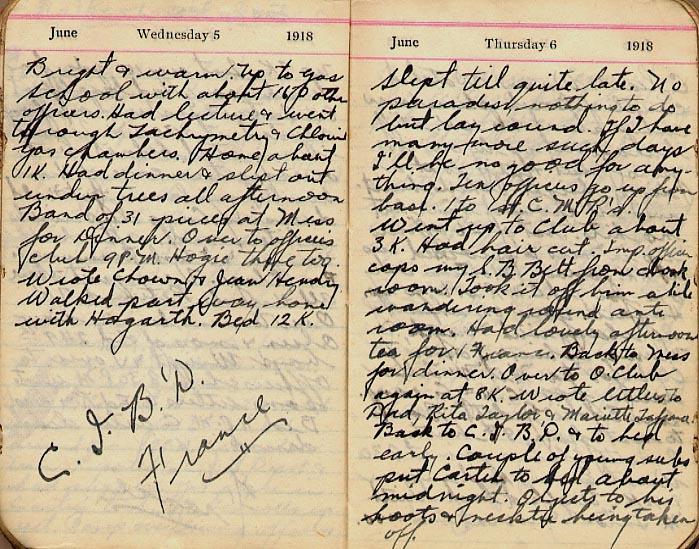 June Wednesday 5 1918
Bright & warm. Up to gas
school with about 160 other
officers. Had lecture & went
through Lachrymetry & Chlorine
gas chambers. Home about
1K. Had dinner & slept out
under trees all afternoon
Band of 31 pieces at Mess
for Dinner. Over to officers
Club 9P.M. Hogie there too
Wrote Chown & Jean Hendry
Walked part way home
with Hogarth. Bed 12K.
C. I. B. D.
France
June Thursday 6 1918
Slept till quite late. No
parades, nothing to do
but lay round. If I have
many more such days
I'll be no good for any-
thing. Ten officers go up from
base. 1 to C. M. R's.
Went up to Club about
3K. Had hair cut. Imp. officer
cops my S. B. Belt from cloak
room. Took it off him while
wandering round ante
room. Had lovely afternoon
tea for 1 Franc. Back to Mess
for dinner. Over to O. Club
again at 8K. Wrote letters to
Dad, Rita Taylor & Mariette
Back to C. I. B. D. & to bed
early. Couple of young subs
put Carter to bed about
midnight. Objects to his
boots & necktie being taken
off.